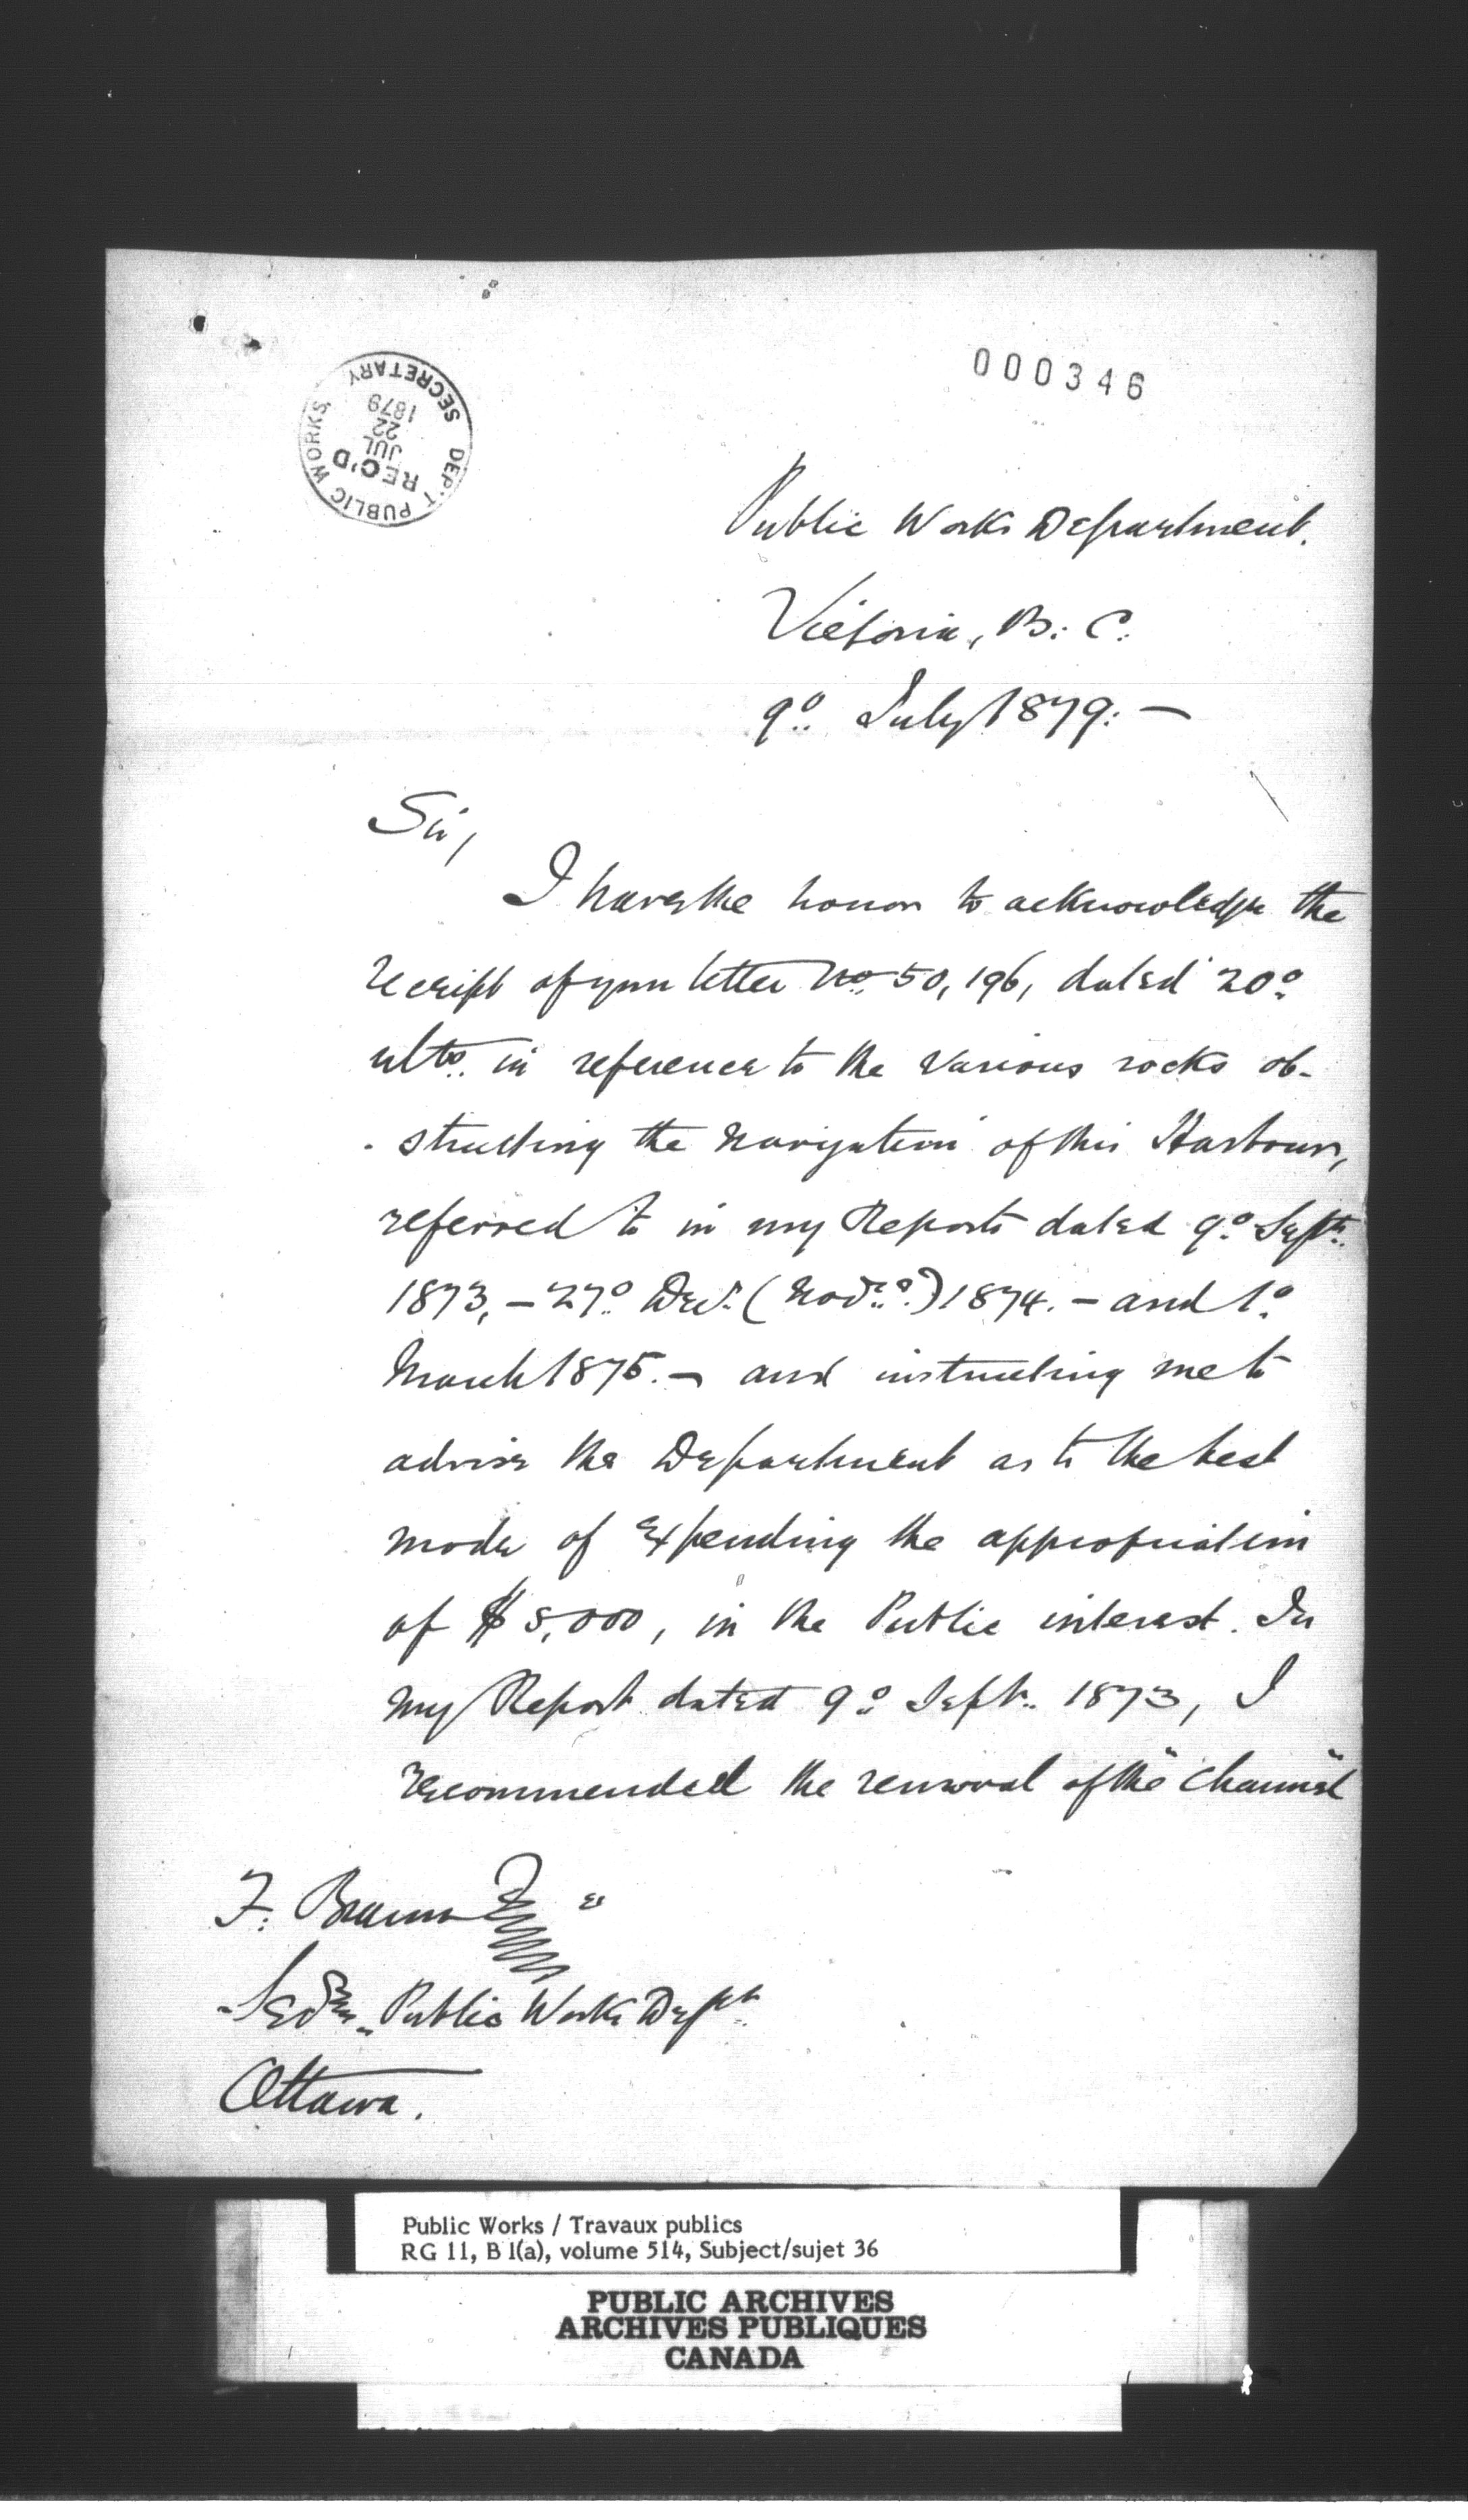 000346
DEP'T PUBLIC WORKS.
SECRETARY
REC'D
JUL
22
1879
Public Works Department.
Victoria, B: C:
9o. July 1879: —
Sir,
I have the honor to acknowledge the
receipt of your letter No. 50,196, dated 20o.
ulto. in reference to the various rocks ob-
- structing the navigation of this Harbour,
referred to in my Reports dated 9o. Septr.
1873, — 27o. Decr. (Novr. ?) 1874. — and 1o.
March 1875. — and instructing me to
advise the Department as to the best
mode of expending the appropriation
of $5,000, in the Public interest. In
my Report dated 9o. Sept. 1873, I
recommended the removal of the "Channel"
F: Braun Esq
Secy. Public Works Dept.
Ottawa.
Public Works / Travaux publics
RG 11, B 1(a), volume 514, Subject/sujet 36
PUBLIC ARCHIVES
ARCHIVES PUBLIQUES
CANADA